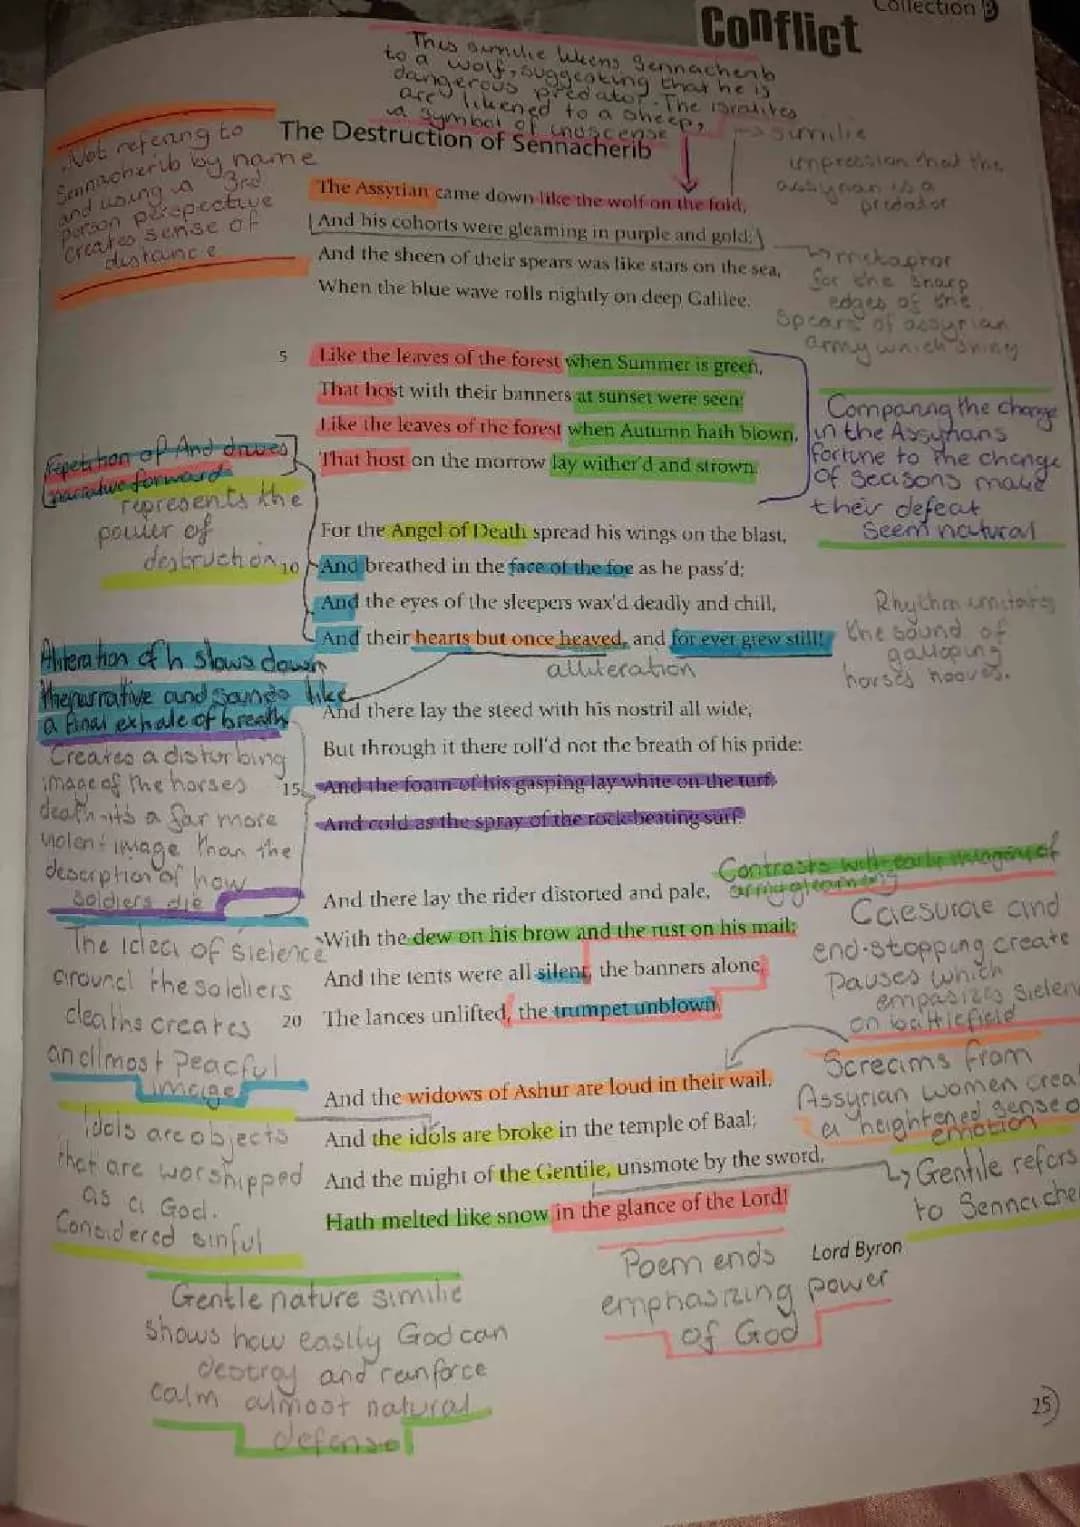 Collection B
Conflict
This similie likens Sennacherib
to a wolf, suggesting that he is
dangerous predator. The isralites
are likened to a sheep,
a symbol of inoscense
→ similie
impression that the
assyrian is a
predator
Not referring to
Sennacherib by name
and using a 3rd
person perspective
creates sense of
distance
The Destruction of Sennacherib
The Assyrian came down like the wolf on the fold,
And his cohorts were gleaming in purple and gold;
And the sheen of their spears was like stars on the sea,
When the blue wave rolls nightly on deep Galilee.
metaphor
for the sharp
edges of the
spears of assyrian
army which shiny
5 Like the leaves of the forest when Summer is green,
That host with their banners at sunset were seen:
Like the leaves of the forest when Autumn hath blown,
That host on the morrow lay wither'd and strown.
Comparing the change
in the Assyrians
fortune to the change
of seasons make
their defeat
seem natural
Repetition of And drives
narrative forward
represents the
power of
destruction
For the Angel of Death spread his wings on the blast,
10 And breathed in the face of the foe as he pass'd;
And the eyes of the sleepers wax'd deadly and chill,
And their hearts but once heaved, and for ever grew still!
alliteration
Rhythm imitates
the sound of
galloping
horses hooves.
Aliteration of h slows down
the narrative and sounds like
a final exhale of breath
And there lay the steed with his nostril all wide,
But through it there roll'd not the breath of his pride:
15 And the foam of his gasping lay white on the turf,
And cold as the spray of the rock-beating surf.
Creates a disturbing
image of the horses
death-it's a far more
violent image than the
description of how
soldiers die
Contrasts with early imagery of
army gleaming
And there lay the rider distorted and pale,
With the dew on his brow and the rust on his mail;
And the tents were all silent, the banners alone,
20 The lances unlifted, the trumpet unblown.
Caesurae and
end-stopping create
Pauses which
empasizes sielen
on battlefield
The idea of sielence
around the soldiers
deaths creates
an allmost peacful
image
And the widows of Ashur are loud in their wail,
And the idols are broke in the temple of Baal;
And the might of the Gentile, unsmote by the sword,
Hath melted like snow in the glance of the Lord!
Screams from
Assyrian women crea
a heightened sense o
emotion
Idols are objects
that are worshipped
as a God.
Considered sinful
→ Gentile refers
to Sennache
Lord Byron
Poem ends
emphasizing power
of God
Gentle nature similie
shows how easily God can
destroy and reinforce
calm almost natural
defense
25